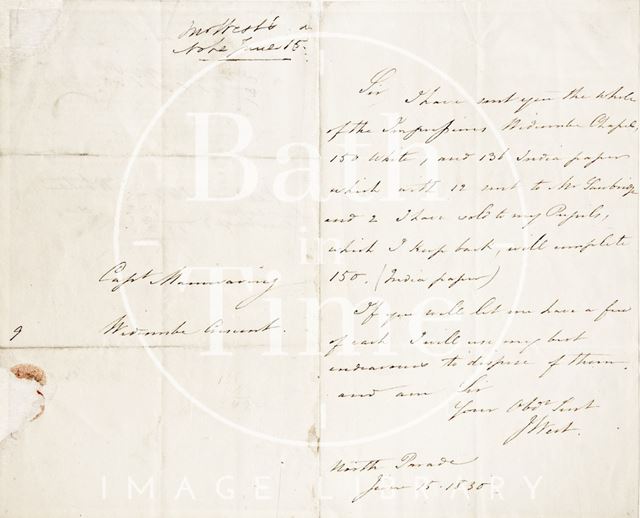 Mr West's
Note June 15.
Capt Mainwaring
Widcombe Crescent.
9
Sir
I have sent you the whole
of the Impressions Widcombe Chapel
150 White, and 136 India paper
which with 12 sent to Mr
and 2 I have sold to my Pupils,
which I keep back, will complete
150. (India paper)
If you will let me have a few
of each I will use my best
endeavours to dispose of them.
and am Sir
Your Obdt Servt
J West.
North Parade
June 15. 1830
Bath
in
Time
IMAGE LIBRARY